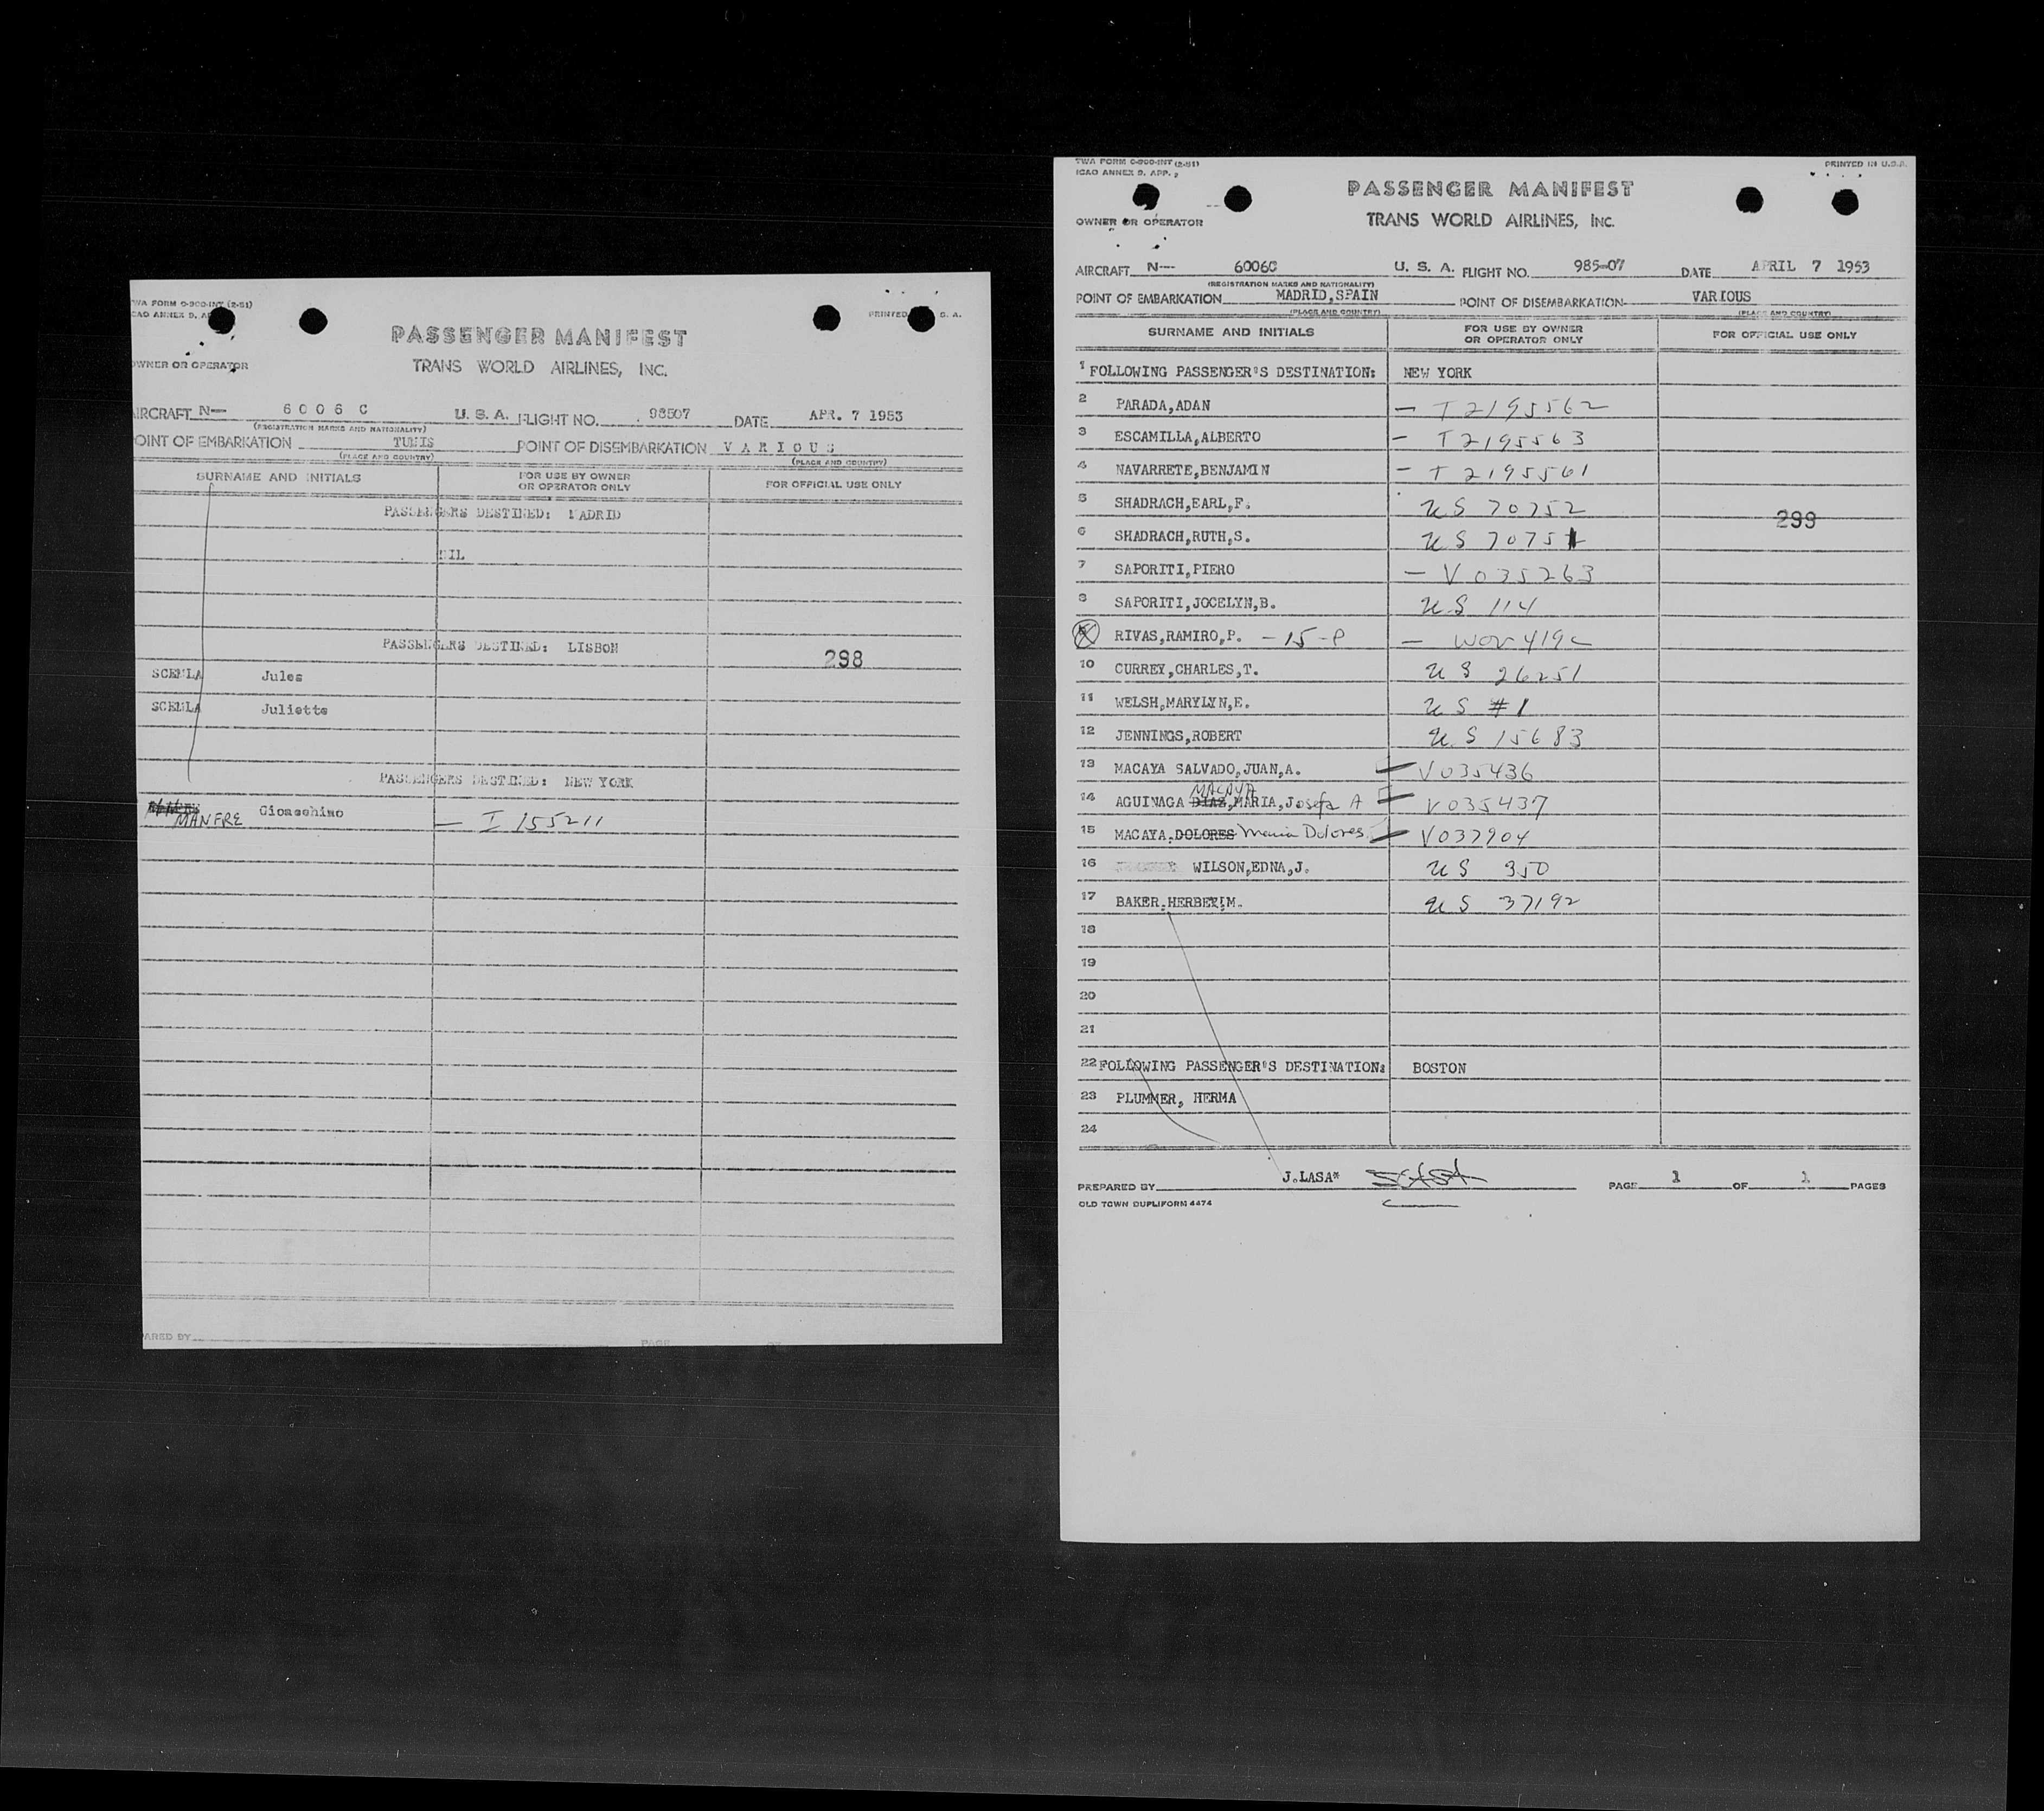 TWA FORM O-900-INT (2-51)
ICAO ANNEX 9. AP
PRINTED S. A.
PASSENGER MANIFEST
OWNER OR OPERATOR
TRANS WORLD AIRLINES, INC.
AIRCRAFT N-- 6006C U. S. A. FLIGHT NO. 98507 DATE APR. 7 1953
(REGISTRATION MARKS AND NATIONALITY)
POINT OF EMBARKATION TUNIS POINT OF DISEMBARKATION VARIOUS
(PLACE AND COUNTRY) (PLACE AND COUNTRY)
SURNAME AND INITIALS FOR USE BY OWNER OR OPERATOR ONLY FOR OFFICIAL USE ONLY
PASSENGERS DESTINED: MADRID
NIL
PASSENGERS DESTINED: LISBON
298
SCEMLA Jules
SCEMLA Juliette
PASSENGERS DESTINED: NEW YORK
MANFRE Gioacchino — I 155211
ARED BY PAGE
TWA FORM O-900-INT (2-51)
ICAO ANNEX 9. APP. 2
PRINTED IN U.S.A.
PASSENGER MANIFEST
OWNER OR OPERATOR
TRANS WORLD AIRLINES, INC.
AIRCRAFT N--- 6006C U. S. A. FLIGHT NO. 985-07 DATE APRIL 7 1953
(REGISTRATION MARKS AND NATIONALITY)
POINT OF EMBARKATION MADRID,SPAIN POINT OF DISEMBARKATION VARIOUS
(PLACE AND COUNTRY) (PLACE AND COUNTRY)
SURNAME AND INITIALS FOR USE BY OWNER OR OPERATOR ONLY FOR OFFICIAL USE ONLY
1 FOLLOWING PASSENGER'S DESTINATION: NEW YORK
2 PARADA,ADAN — T2195562
3 ESCAMILLA,ALBERTO — T2195563
4 NAVARRETE,BENJAMIN — T2195561
5 SHADRACH,EARL,F. US 70752
299
6 SHADRACH,RUTH,S. US 70751
7 SAPORITI,PIERO — V035263
8 SAPORITI,JOCELYN,B. US 114
RIVAS,RAMIRO,P. —15-P —
10 CURREY,CHARLES,T. US 26251
11 WELSH,MARYLYN,E. US #1
12 JENNINGS,ROBERT US 15683
13 MACAYA SALVADO,JUAN,A. — V035436
MACAYA
14 AGUINAGA DIAZ,MARIA,Josefa A — V035437
15 MACAYA,DOLORES Maria Dolores — V037904
16 WILSON,EDNA,J. US 350
17 BAKER,HERBERT,M. US 37192
18
19
20
21
22 FOLLOWING PASSENGER'S DESTINATION: BOSTON
23 PLUMMER, HERMA
24
PREPARED BY J.LASA* PAGE 1 OF 1 PAGES
OLD TOWN DUPLIFORM 4474